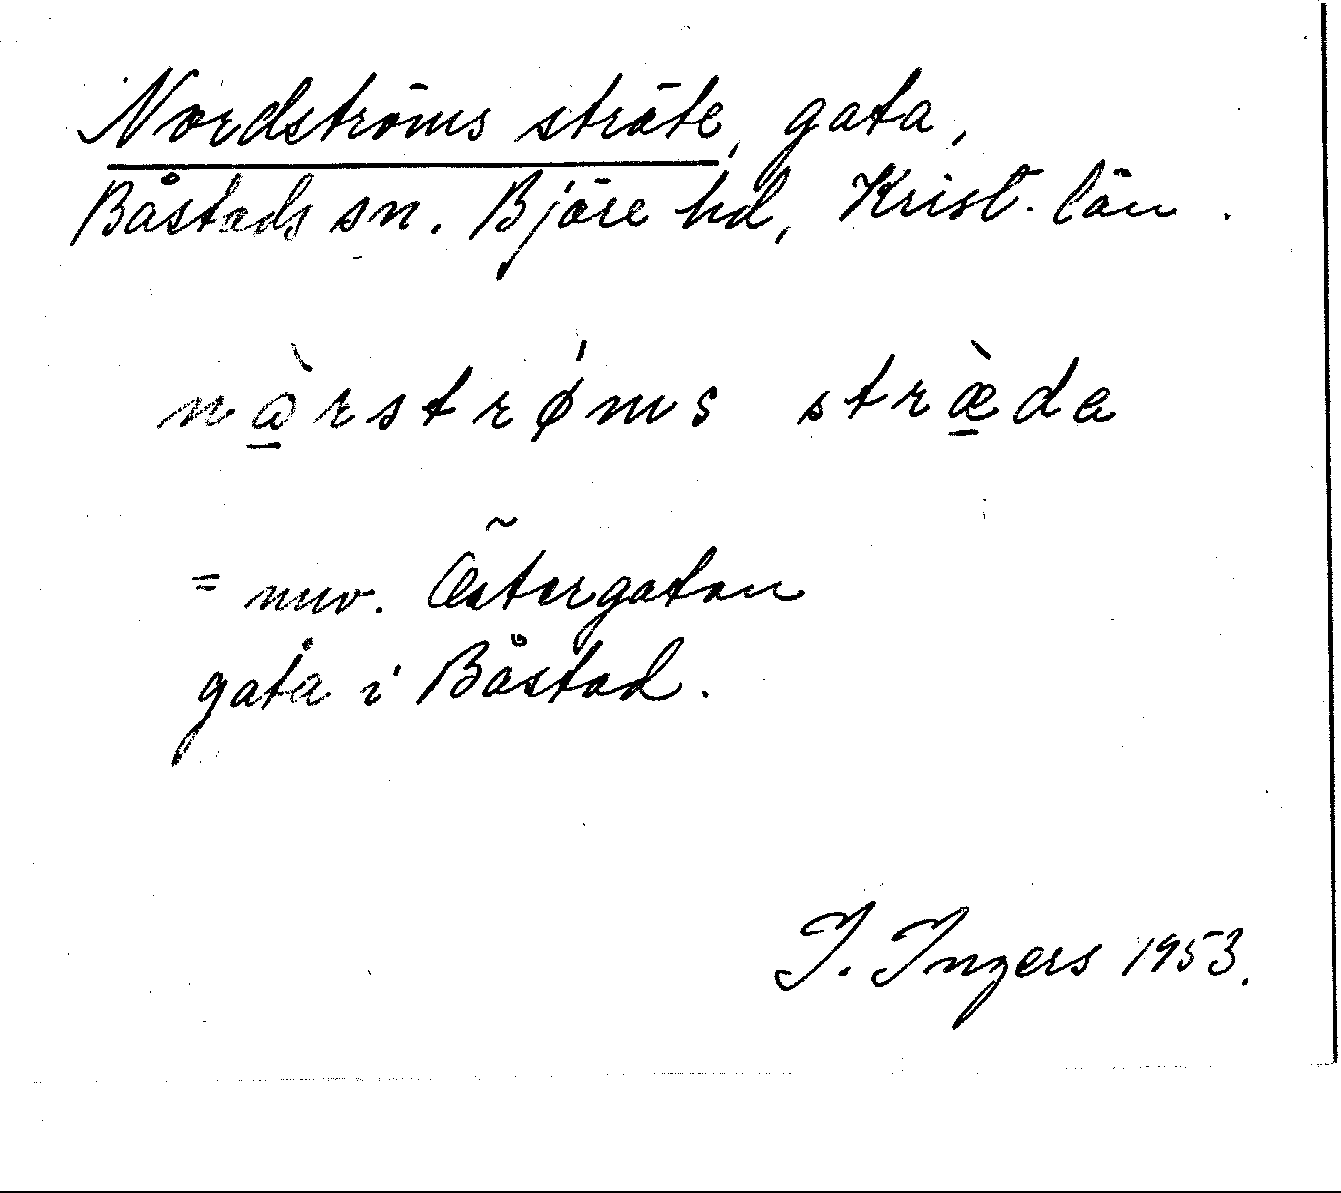 Nordströms sträte, gata,
Båstads sn. Bjäre hd, Krist. län.
nàrstrǿms stræ̀da
= nuv. Östergatan
gata i Båstad.
I. Ingers 1953.